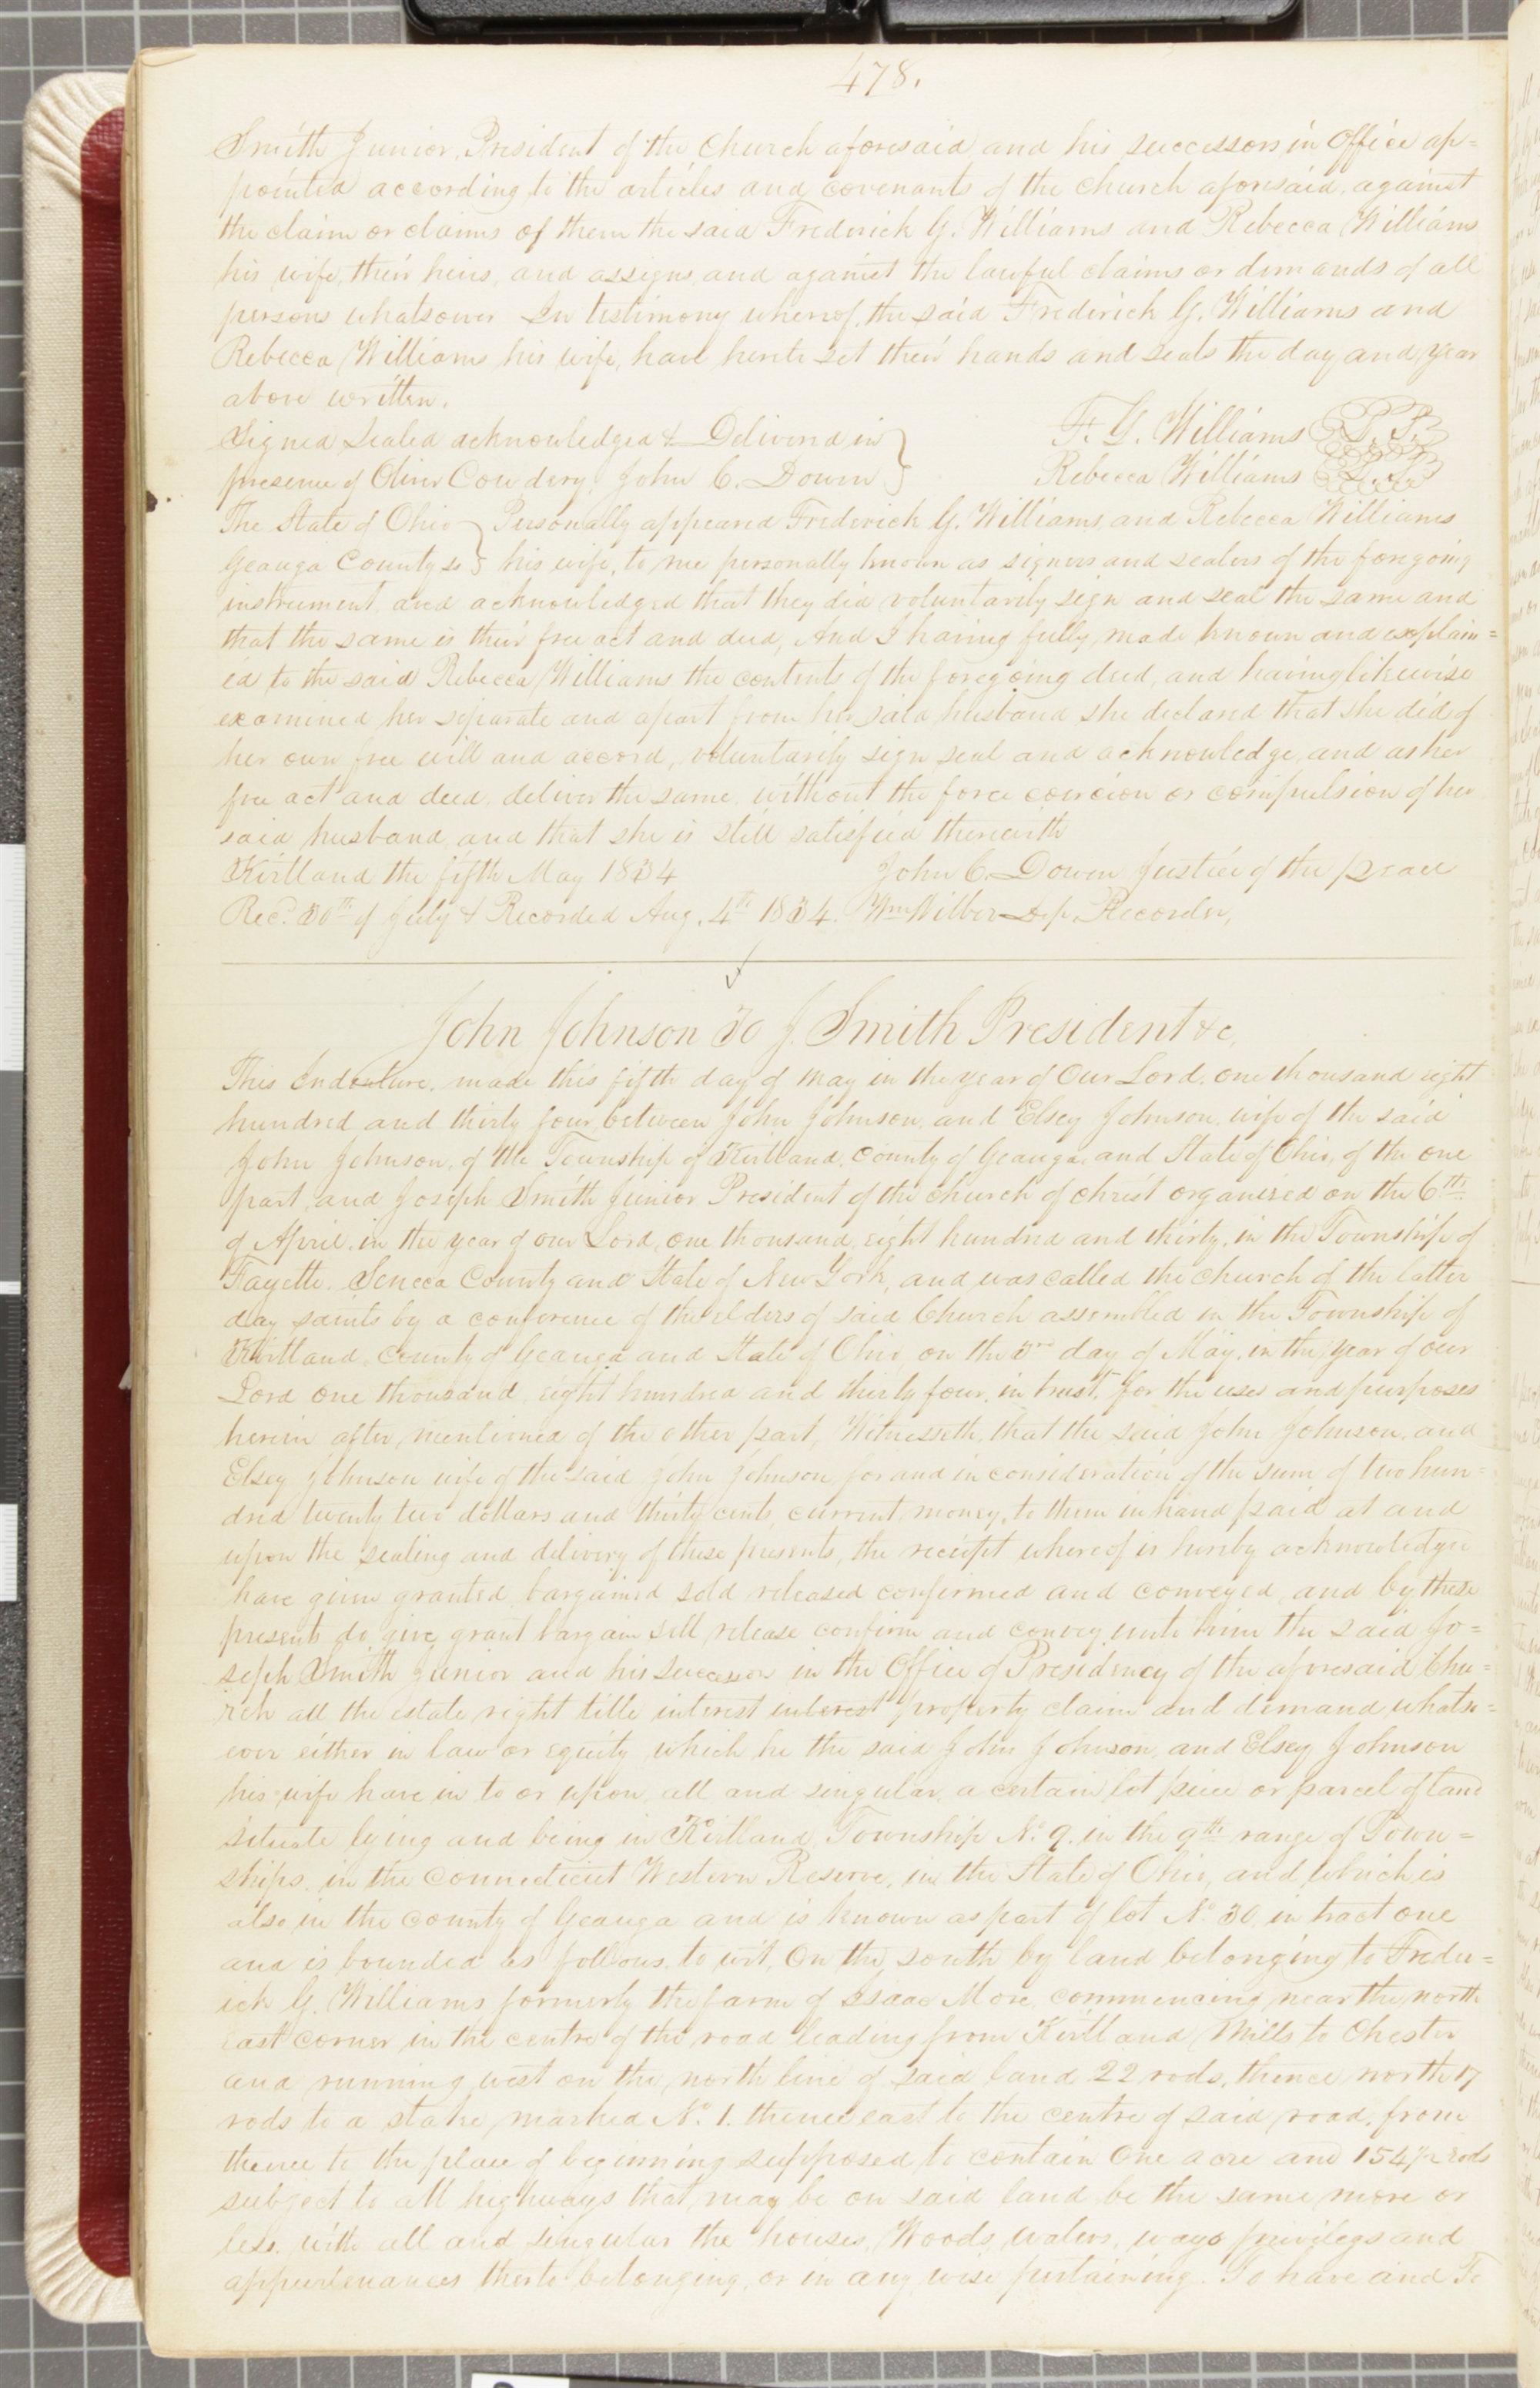 478.
Smith Junior, President of the Church aforesaid and his successors in Office ap=
pointed according to the articles and covenants of the church aforesaid, against
the claim or claims of them the said Frederick G. Williams and Rebecca Williams
his wife, their heirs, and assigns, and against the lawful claims or demands of all
persons whatsover In testimony whereof, the said Frederick G. Williams and
Rebecca Williams his wife, have hereto set their hands and seals the day and year
above written.
Signed Sealed acknowledged & Delivered in } F. G. Williams L.S.
presence of Oliver Cowdery, John C. Dowen } Rebecca Williams L.S.
The State of Ohio } Personally appeared Frederick G. Williams, and Rebecca Williams
Geauga County ss } his wife, to me personally known as signers and sealers of the foregoing
instrument, and acknowledged that they did voluntarily sign and seal the same and
that the same is their free act and deed, And I having fully made known and explain=
ed to the said Rebecca Williams the contents of the foregoing deed, and having likewise
examined her separate and apart from her said husband she declared that she did of
her own free will and accord, voluntarily sign seal and acknowledge, and as her
free act and deed, deliver the same, without the force coercion or compulsion of her
said husband, and that she is still satisfied therewith
Kirtland the fifth May 1834 John C. Dowen Justice of the peace
Rec.d 30th of July & Recorded Aug. 4th 1834. Wm Wilber Dep. Recorder,
John Johnson To J. Smith President &c,
This Indenture, made this fifth day of May in the year of Our Lord, one thousand eight
hundred and thirty four, between John Johnson, and Elsey Johnson, wife of the said
John Johnson, of the Township of Kirtland, County of Geauga, and State of Ohio, of the one
part, and Joseph Smith Junior President of the church of christ organized on the 6th
of April, in the year of our Lord, one thousand, eight hundred and thirty, in the Township of
Fayette, Seneca County and State of New York, and was called the church of the latter
day saints by a conference of the elders of said Church assembled in the Township of
Kirtland, County of Geauga and State of Ohio, on the 3rd day of May, in the year of our
Lord one thousand, eight hundred and thirty four, in trust, for the uses and purposes
herein after, mentioned of the other part, Witnesseth, that the said John Johnson, and
Elsey Johnson wife of the said John Johnson, for and in consideration of the sum of two hun=
dred twenty two dollars and thirty cents, current money, to them in hand paid at and
upon the sealing and delivery of these presents, the receipt whereof is hereby acknowledged
have given granted, bargained sold released confirmed and conveyed, and by these
presents do give, grant bargain sell release confirm and convey, unto him the said Jo=
seph Smith Junior and his successors in the Office of Presidency of the aforesaid Chu=
rch all the estate right title interest interest property claim and demand whatso=
ever either in law or equity which he the said John Johnson, and Elsey Johnson
his wife have in to or upon, all and singular, a certain lot piece or parcel of land
situate lying and being in Kirtland, Township No. 9. in the 9th range of Town=
ships, in the Connecticut Western Reserve, in the State of Ohio, and which is
also in the County of Geauga and is known as part of lot No. 30, in tract one
and is bounded as follows, to wit, On the south by land belonging to Freder=
ick G. Williams formerly the farm of Isaac More, commencing near the north
east corner in the centre of the road leading from Kirtland Mills to Chester
and running west on the north line of said land 22 rods, thence north 17
rods to a stake, marked No. 1. thence east to the centre of said road, from
thence to the place of beginning supposed to contain One acre and 154 1/2 rods
subject to all highways that may be on said land be the same more or
less, with all and singular the houses, Woods, waters, ways privilegs and
appurtenances thereto belonging, or in any wise pertaining. To have and To